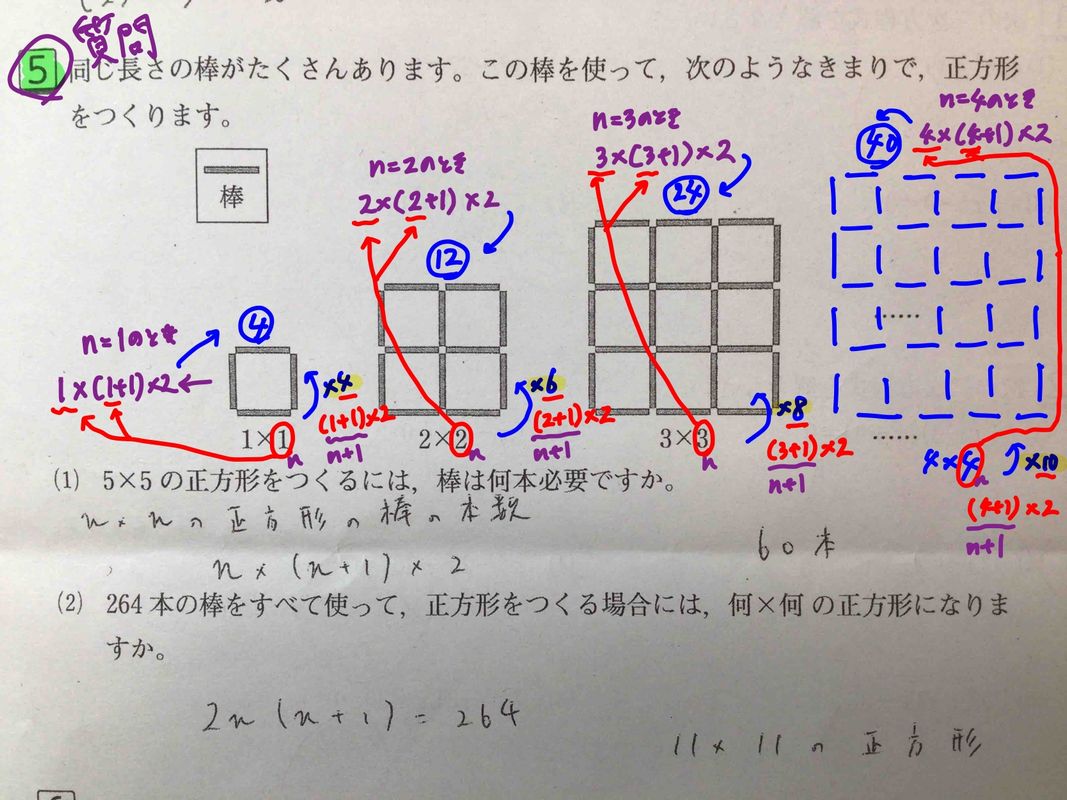 質問
5 同じ長さの棒がたくさんあります。この棒を使って，次のようなきまりで，正方形
をつくります。
棒
n=1のとき
1×(1+1)×2
4
1×1
n
×4
(1+1)×2
n+1
n=2のとき
2×(2+1)×2
12
2×2
n
×6
(2+1)×2
n+1
n=3のとき
3×(3+1)×2
24
3×3
n
×8
(3+1)×2
n+1
n=4のとき
4×(4+1)×2
40
……
……
4×4
n
×10
(4+1)×2
n+1
(1) 5×5の正方形をつくるには，棒は何本必要ですか。
n×nの正方形の棒の本数
n×(n+1)×2
60本
(2) 264本の棒をすべて使って，正方形をつくる場合には，何×何の正方形になりま
すか。
2n(n+1)=264
11×11の正方形